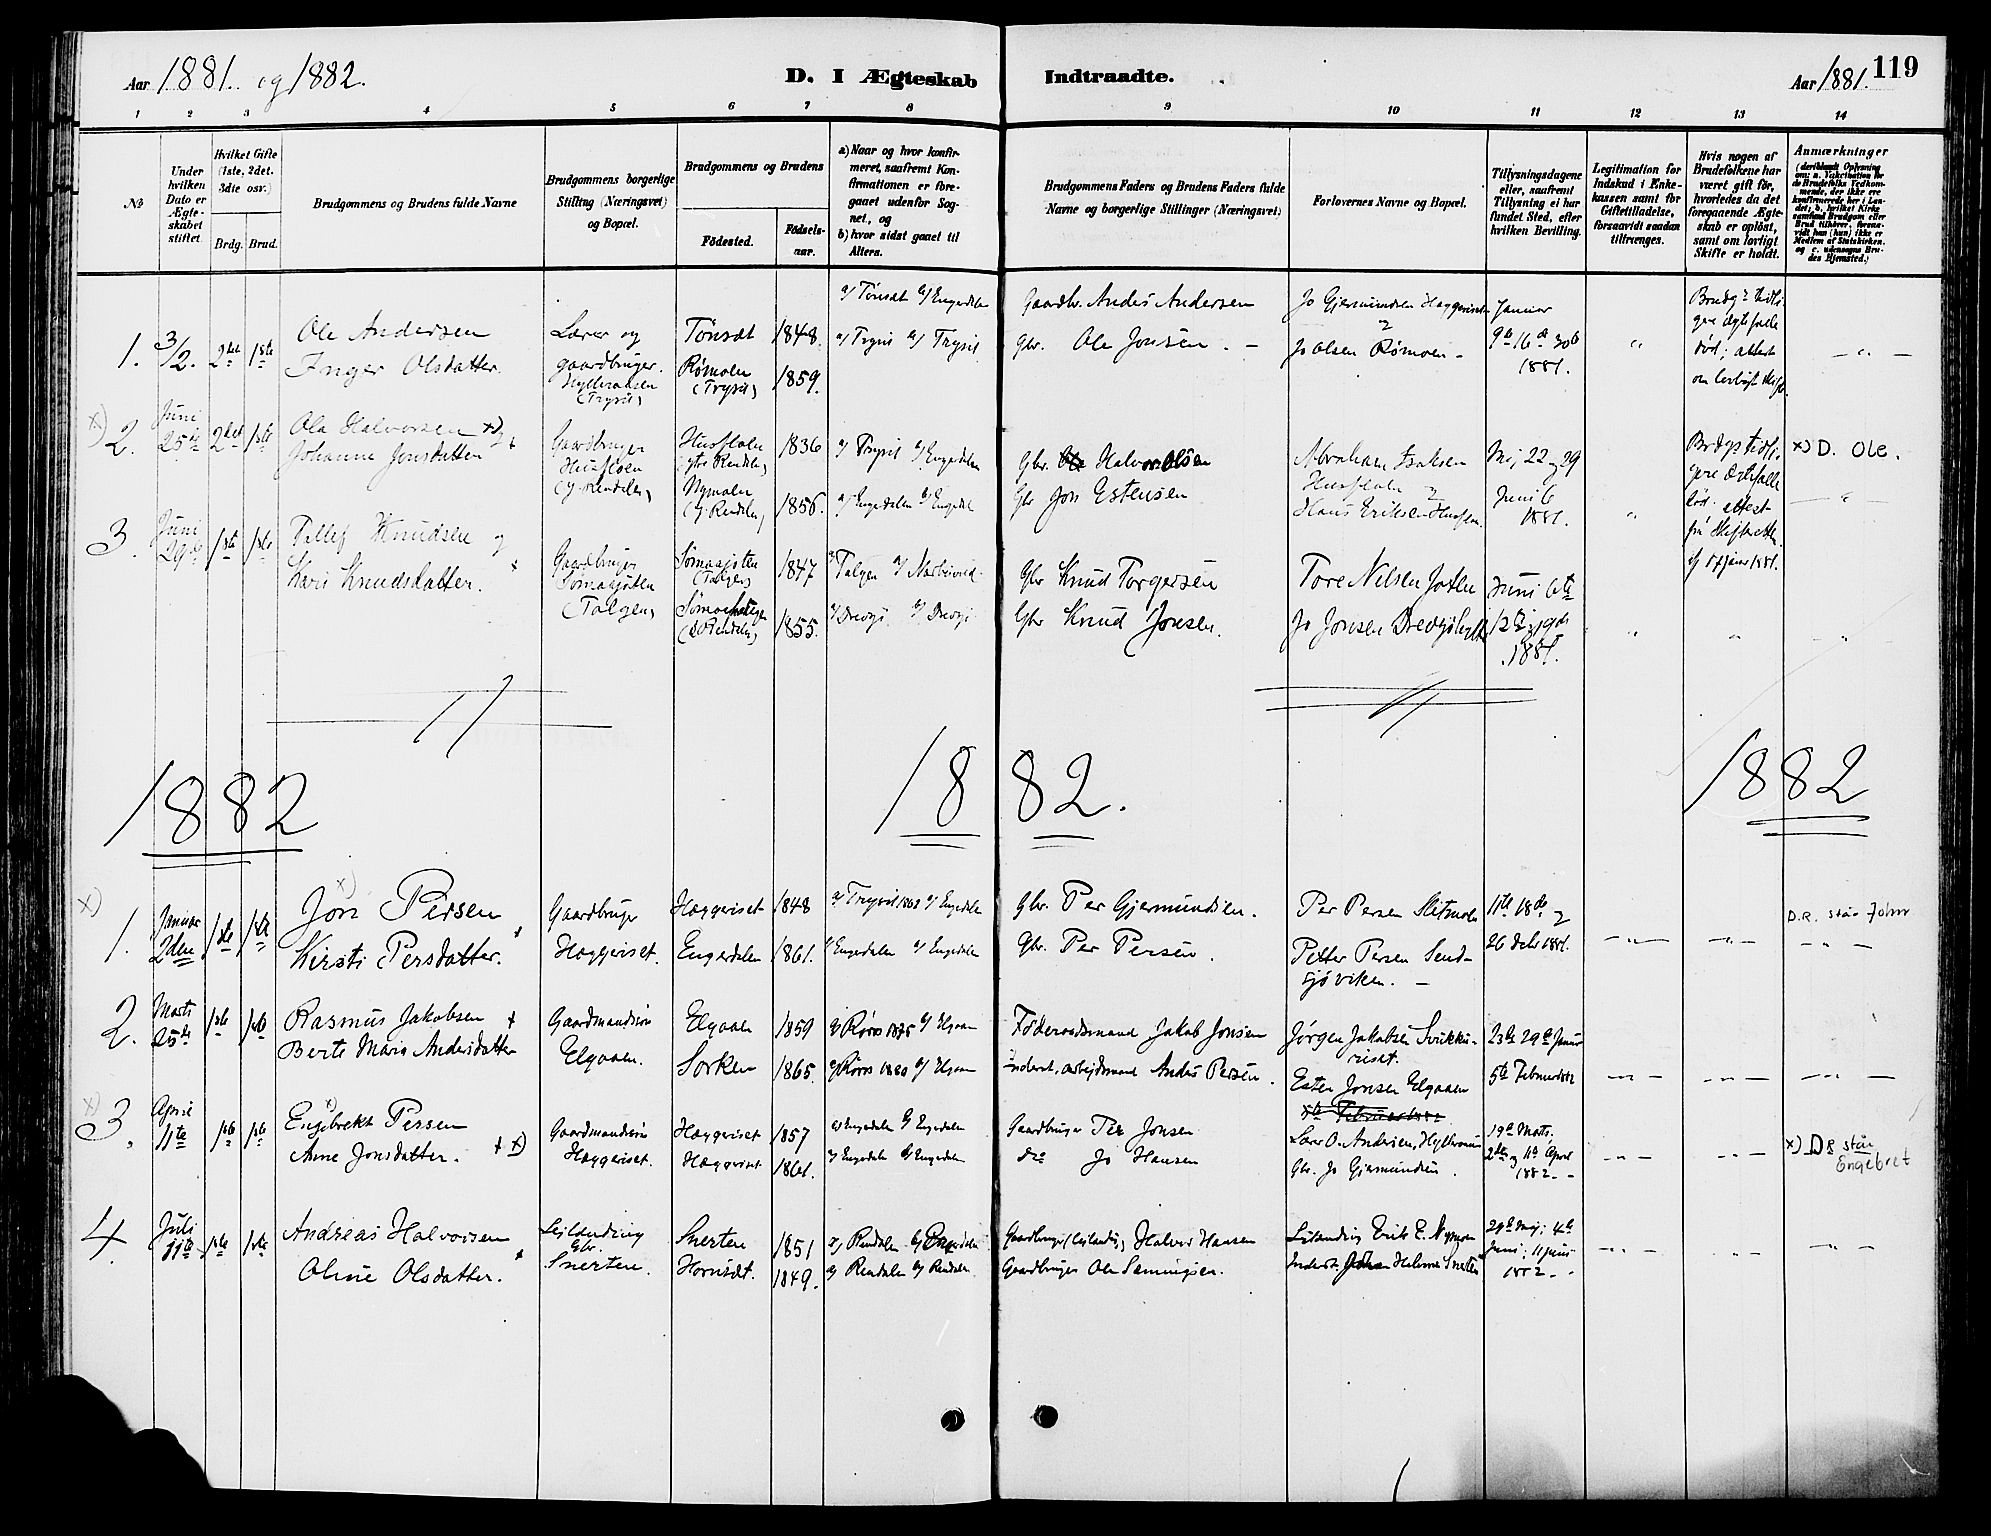 Aar 1881. og 1882.
D. I Ægteskab Indtraadte.
Aar 1881. 119
1 2 3 4 5 6 7 8 9 10 11 12 13 14
No
Under hvilken Dato er Ægteskabet stiftet.
Hvilket Gifte (1ste, 2det. 3die osv.)
Brdg. Brud.
Brudgommens og Brudens fulde Navne
Brudgommens borgerlige Stilling (Næringsvei) og Bopæl.
Brudgommens og Brudens
Fødested.
Fødsels-aar.
a) Naar og hvor konfirmeret, saafremt Konfirmationen er foregaaet udenfor Sognet, og
b) hvor sidst gaaet til Alters.
Brudgommens Faders og Brudens Faders fulde Navne og borgerlige Stillinger (Næringsvei)
Forlovernes Navne og Bopæl.
Tillysningsdagene eller, saafremt Tillysning ei har fundet Sted, efter hvilken Bevilling.
Legitimation for Indskud i Enkekassen samt for Giftetilladelse, forsaavidt saadan tiltrænges.
Hvis nogen af Brudefolkene har været gift før, hvorledes da det foregaaende Ægteskab er opløst, samt om lovligt Skifte er holdt.
Anmærkninger
(deriblandt Oplysning om: a. Vakcination for de Brudefolks Vedkommende, der ikke ere konfirmerede her i Landet; b. hvilket Kirkesamfund Brudgom eller Brud tilhører, forsaavidt han (hun) ikke er Medlem af Statskirken. og c. udensogns Brudes Hjemsted.)
a/ Tønset b/ Engerdalen Gaardbr. Andes Andersen Jo Gjermundsen Haggeriset Januar
1. 3/2. 2det 1ste Ole Andersen Lærer og Tønset 1848. a/ Trysil b/ Trysil Gbr. Ole Jonsen. Jo Olsen Rømoen 9de 16de 30te 1881.
Inger Olsdatter. gaardbruger. Rømoen (Trysil) 1859.
Hylleraasen (Trysil)
x) 2. Juni 25de 2det 1ste Ole Halvorsen x) Gaardbruger Husfloen (ytre Rendalen) 1836 a/ Trysil b/ Engerdalen Gbr. Halvor Olsen Abraham Isaksen Husfloen Maj 22 og 29 x) D. Ole.
Johanne Jonsdatter Husfloen (y. Rendalen) Nymoen (y. Rendalen) 1856. a/ Engerdalen b/ Engerdal Gbr Jon Estensen Hans Eriksen Husfloen. Juni 6 1881.
3. Juni 29de 1ste 1ste Tellef Knudsen og Gaardbruger Sømaasjøten (Tolgen) 1847 a/ Tolgen Gbr Knud Torgersen Tore Nilsen Juni 6te
Kari Knudsdatter. (Tolgen) 1855. a/ Drevsjø b/ Drevsjø Gbr Knud Jonsen. Jo Jonsen 12te 19de 1881.
1882 1882. 1882
x) 1. Januar 2den 1ste 1ste x) Jon Persen Gaardbruger Haggeriset 1848 a/ Trysil 1862 b/ Engerdalen Gbr. Per Gjermundsen. Per Persen 11te 18de og D.R. står John
Kirsti Persdatter. Haggeriset. Engerdalen 1861. a/ Engerdalen b/ Engerdalen Gbr. Per Persen. Petter Persen Sendsjøviken. 26 Debr 1881.
2. Marts 25de 1ste 1ste Rasmus Jakobsen Gaardmandssøn Elgaaen 1859 a/ Røros 1875 b/ Elgaaen Føderaadsmand Jakob Jonsen Jørgen Jakobsen Svukkuriset. 23de 29de Januar
Berte Maria Andersdatter Elgaaen. Sorken 1865. a/ Røros 1880 b/ Elgaaen Inderst, arbejdsmand Andes Persen. Esten Jonsen Elgaaen 5te Februar 1882
x) 3. April 11te 1ste 1ste x) Engebrekt Persen Gaardmandssøn Haggeriset 1857 a/ Engerdalen b/ Engerdalen Gaardbruger Per Jonsen Lærer O. Andersen, Hylleraasen 19de Marts. x) DR står Engebret
Anne Jonsdatter. x) Haggeriset. Haggeriset 1861. a/ Engerdalen b/ Engerdalen do Jo Hansen Gbr. Jo Gjermundsen. 2den og 11te April 1882.
4. Juli 11te 1ste 1ste Andreas Halvorsen Leilænding Gbr. Snerten 1851 a/ Rendalen b/ Engerdalen Gaardbruger (Leilænding) Halvor Hansen Leilænding Erik E. Nymoen 29de Maj; 4de
Oline Olsdatter. Snerten. Hornset. 1849. a/ Rendalen b/ Rendalen Gaardbruger Ole Semmingsen. Inderst Johan Halvorsen Snerten Juni; 11 Juni 1882.